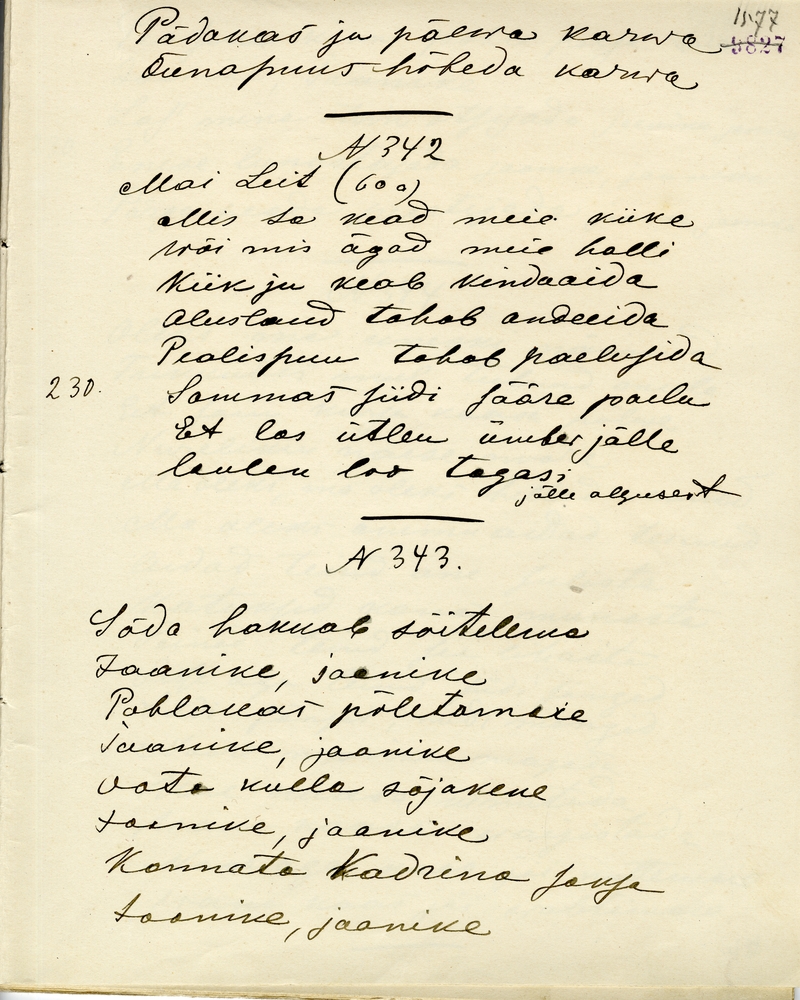 1577
9827
Pädakas ju päewa karwa
Õunapuus hõbeda karwa
N 342
Mai Leit (60a)
Mis sa kead meie kiike
Wõi mis ägad meie halli
Kiik ju keab kindaaida
Aluslaud tahab andeeida
Pealispuu tahab paelusida
230. Sammas siidi sääre paelu
Et las ütlen ümber jälle
laulen loo tagasi
jälle algusest
N 343.
Sõda hakkab sõitelema
Jaanike, jaanike
Pablakas põletamaie
Jaanike, jaanike
Oota kulla sõjakene
Jaanike, jaanike
Kannata Kadrina saksa
Jaanike, jaanike